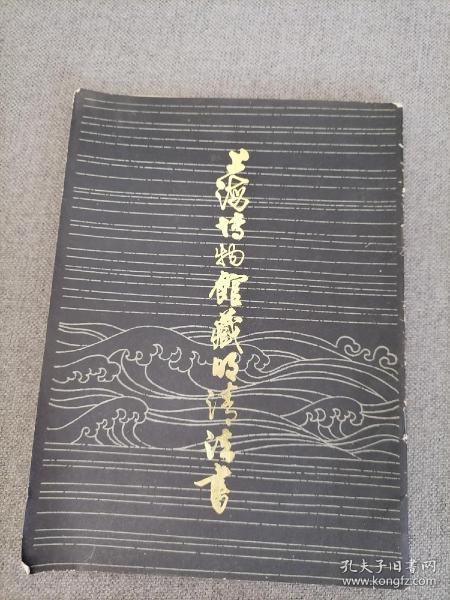 上海博物館藏明清法书
孔夫子旧书网
www.kongfz.com